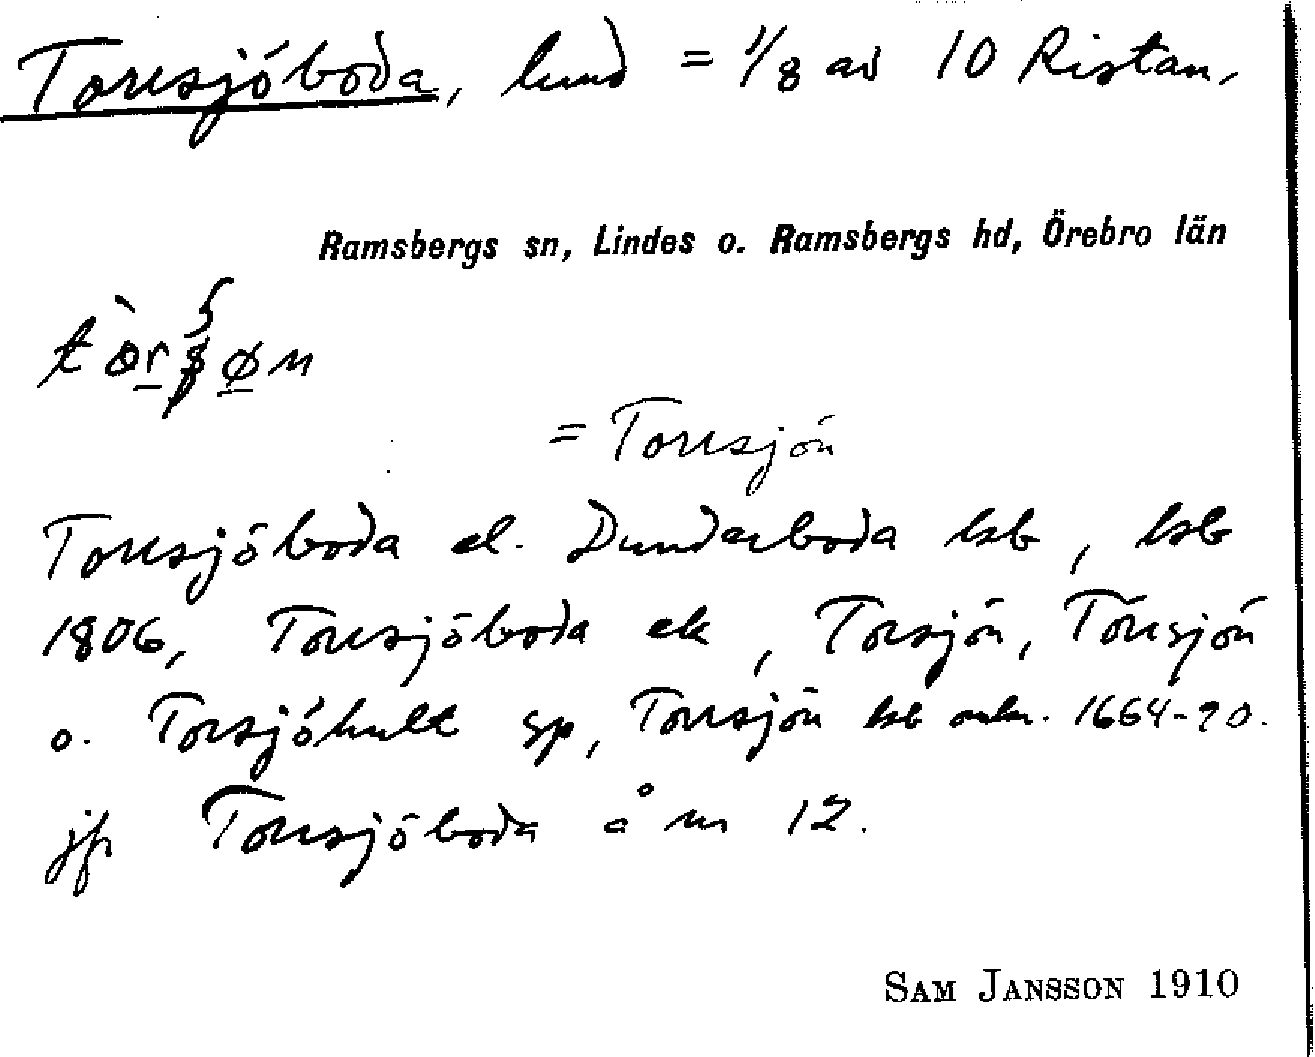 Torrsjöboda, lund = 1/8 av 10 Ristan,
Ramsbergs sn, Lindes o. Ramsbergs hd, Örebro län
= Torrsjön
Torrsjöboda el. Dunderboda lsb, lsb
1806, Torrsjöboda ek, Torsjön, Torrsjön
o. Torsjöhult sp, Torrsjön lsb 1664-90.
jfr Torrsjöboda å nr 12.
SAM JANSSON 1910